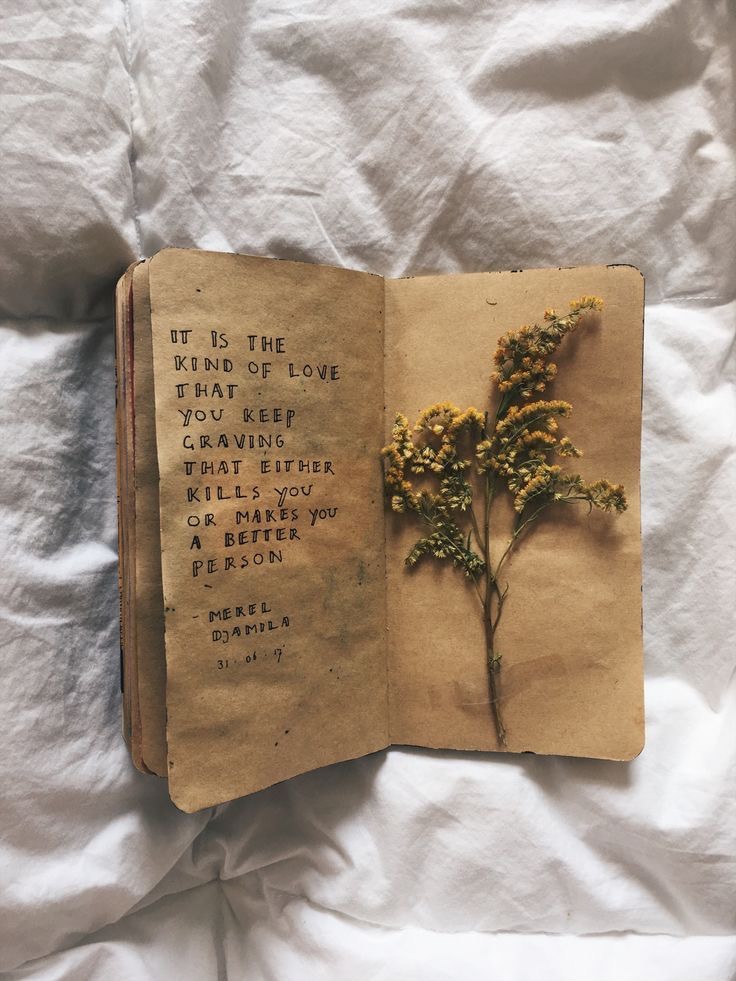 IT IS THE
KIND OF LOVE
THAT
YOU KEEP
GRAVING
THAT EITHER
KILLS YOU
OR MAKES YOU
A BETTER
PERSON
- MEREL
DJAMILA
31 · 06 · 17